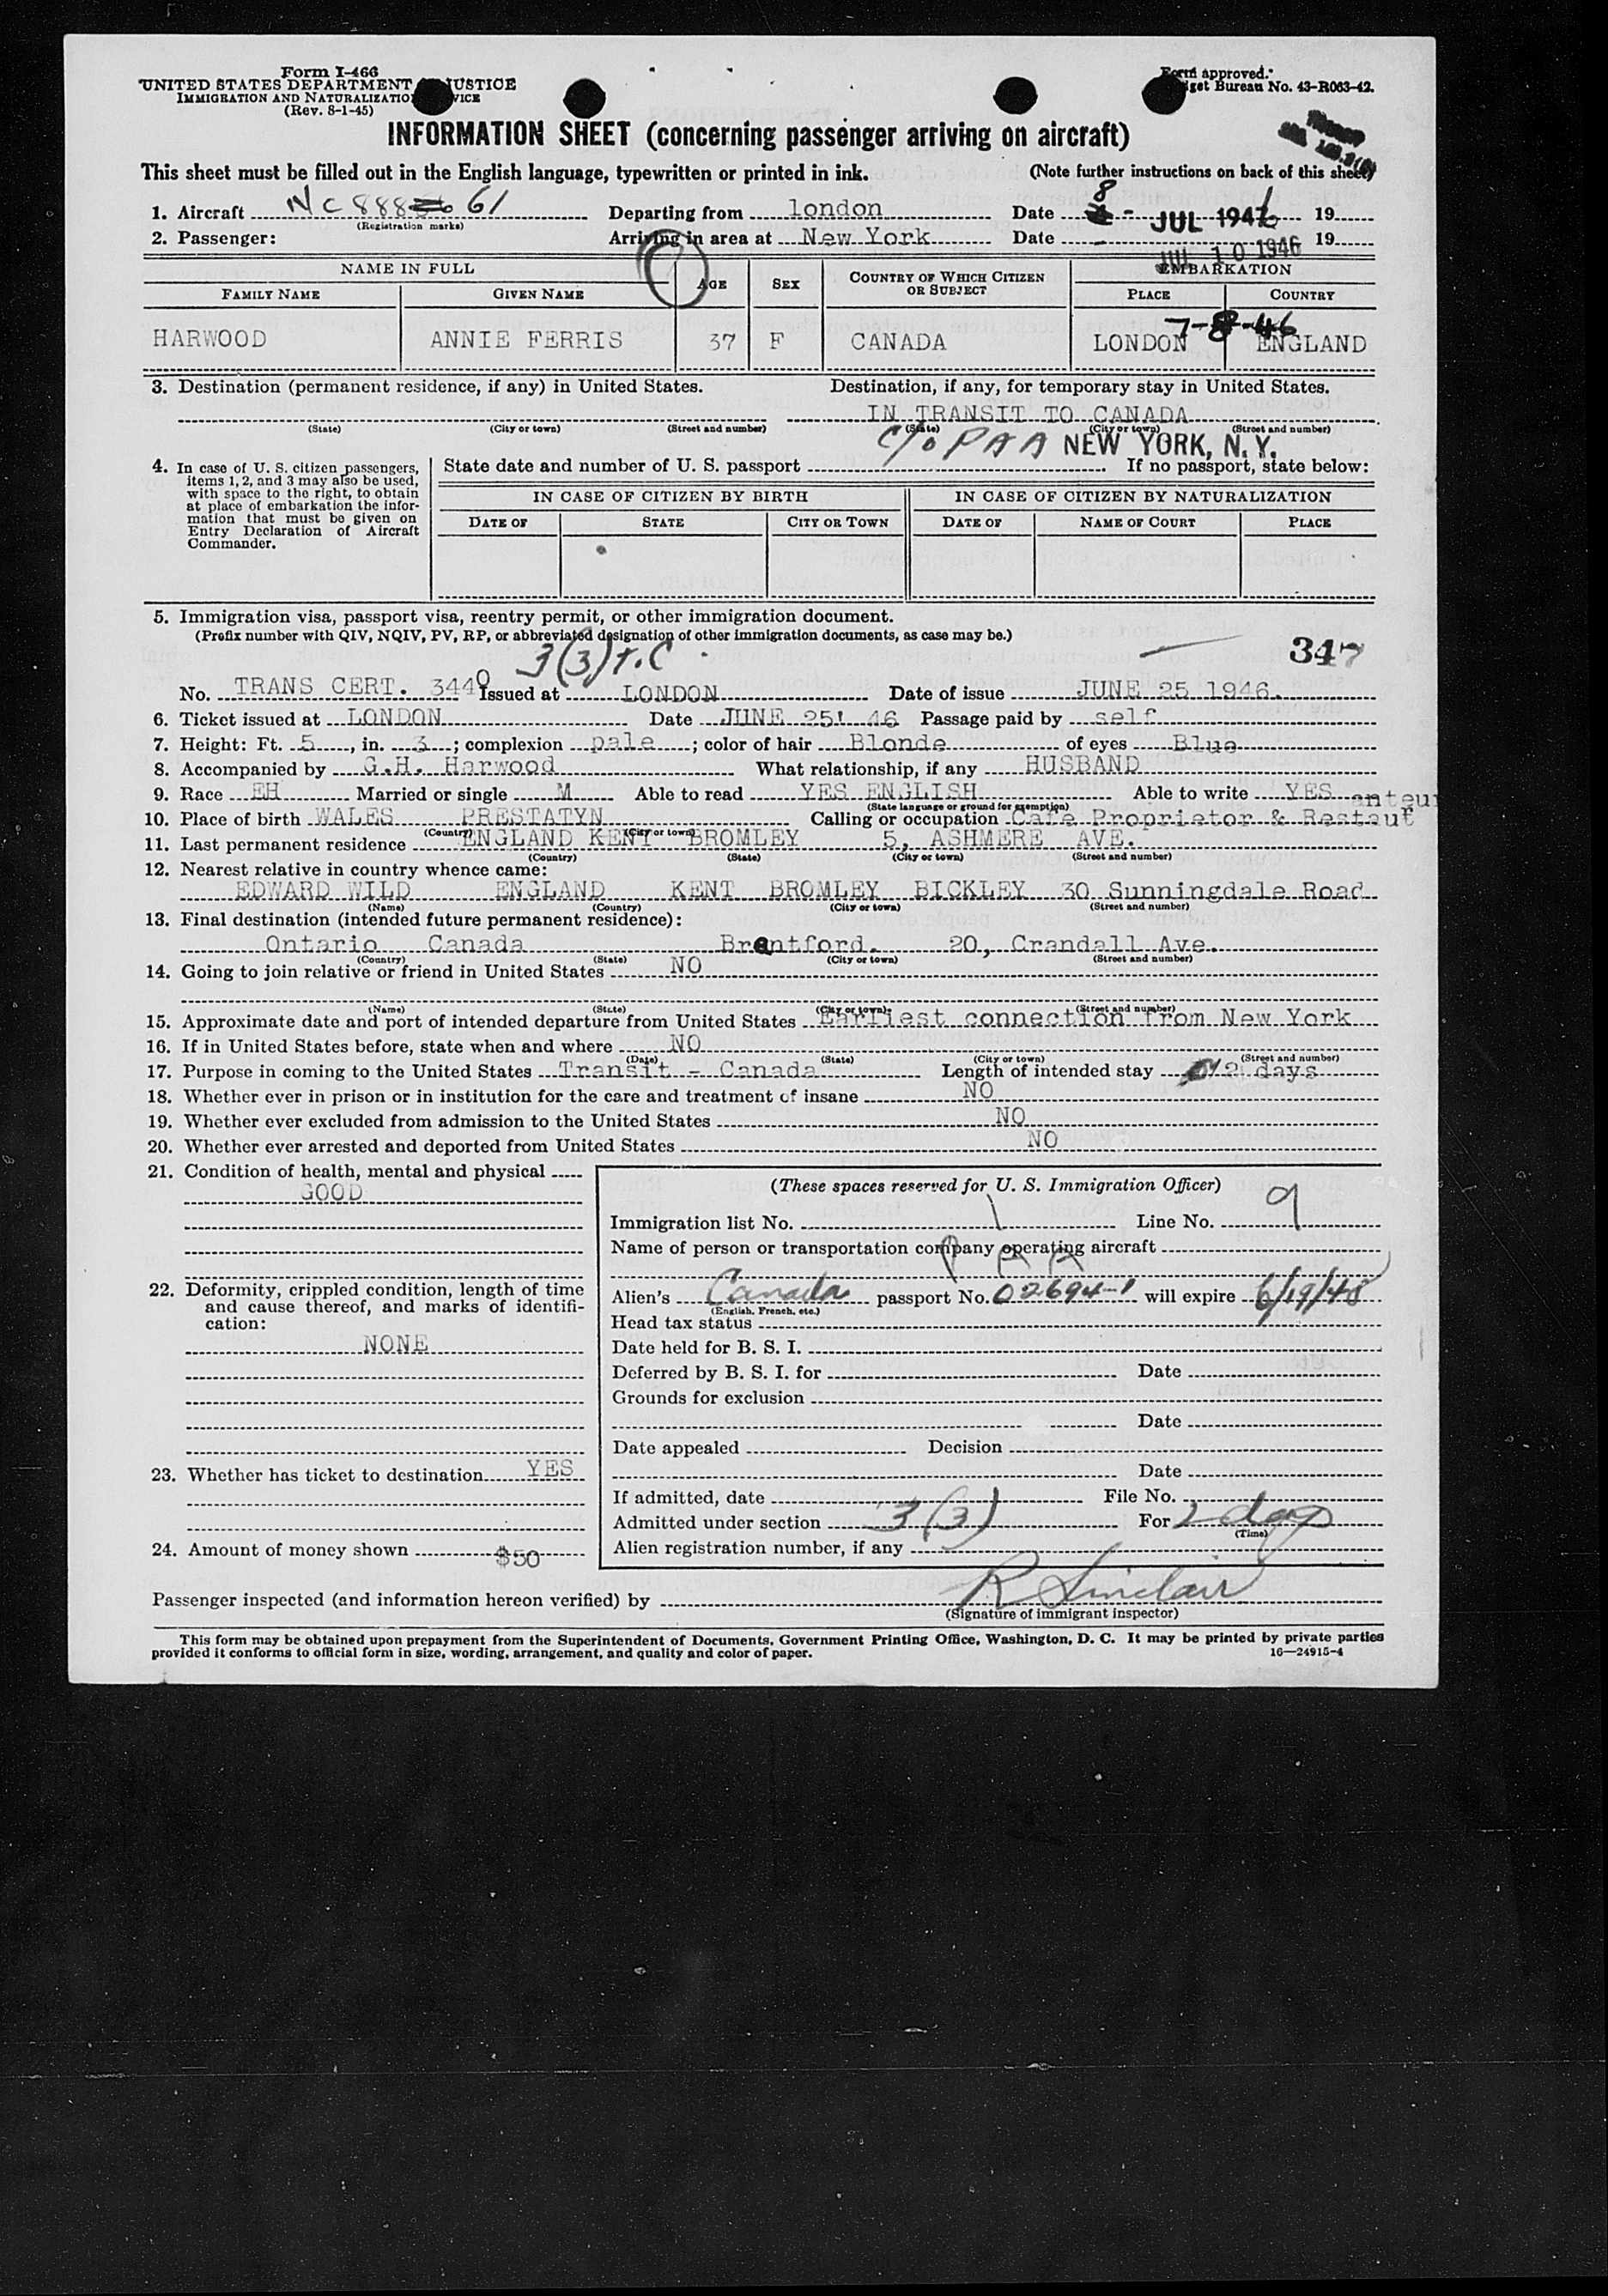 Form I-466
UNITED STATES DEPARTMENT JUSTICE
IMMIGRATION AND NATURALIZATION
(Rev. 8-1-45)
Form approved.
Bureau No. 43-R063-42.
INFORMATION SHEET (concerning passenger arriving on aircraft)
This sheet must be filled out in the English language, typewritten or printed in ink. (Note further instructions on back of this sheet)
1. Aircraft NC 888 61 Departing from london Date 8 - JUL 1946 19
(Registration marks)
2. Passenger: Arriving in area at New York Date JUL 10 1946 19
NAME IN FULL AGE SEX COUNTRY OF WHICH CITIZEN OR SUBJECT EMBARKATION
FAMILY NAME GIVEN NAME PLACE COUNTRY
7-8-46
HARWOOD ANNIE FERRIS 37 F CANADA LONDON ENGLAND
3. Destination (permanent residence, if any) in United States. Destination, if any, for temporary stay in United States.
IN TRANSIT TO CANADA
(State) (City or town) (Street and number) (State) (City or town) (Street and number)
C/o PAA NEW YORK, N.Y.
4. In case of U. S. citizen passengers, items 1, 2, and 3 may also be used, with space to the right, to obtain at place of embarkation the information that must be given on Entry Declaration of Aircraft Commander.
State date and number of U. S. passport If no passport, state below:
IN CASE OF CITIZEN BY BIRTH IN CASE OF CITIZEN BY NATURALIZATION
DATE OF STATE CITY OR TOWN DATE OF NAME OF COURT PLACE
5. Immigration visa, passport visa, reentry permit, or other immigration document.
(Prefix number with QIV, NQIV, PV, RP, or abbreviated designation of other immigration documents, as case may be.)
3(3) t.C 347
No. TRANS CERT. 3440 Issued at LONDON Date of issue JUNE 25 1946.
6. Ticket issued at LONDON Date JUNE 25! 46 Passage paid by self
7. Height: Ft. 5, in. 3; complexion pale; color of hair Blonde of eyes Blue
8. Accompanied by G.H. Harwood What relationship, if any HUSBAND
9. Race EH Married or single M Able to read YES ENGLISH Able to write YES
(State language or ground for exemption)
anteur
10. Place of birth WALES PRESTATYN Calling or occupation Cafe Proprietor & Restaut
(Country) (City or town)
11. Last permanent residence ENGLAND KENT BROMLEY 5, ASHMERE AVE.
(Country) (State) (City or town) (Street and number)
12. Nearest relative in country whence came:
EDWARD WILD ENGLAND KENT BROMLEY BICKLEY 30 Sunningdale Road
(Name) (Country) (City or town) (Street and number)
13. Final destination (intended future permanent residence):
Ontario Canada Brantford. 20, Crandall Ave.
(Country) (State) (City or town) (Street and number)
14. Going to join relative or friend in United States NO
(Name) (State) (City or town) (Street and number)
15. Approximate date and port of intended departure from United States Earliest connection from New York
16. If in United States before, state when and where NO
(Date) (State) (City or town) (Street and number)
17. Purpose in coming to the United States Transit - Canada Length of intended stay 2 days
18. Whether ever in prison or in institution for the care and treatment of insane NO
19. Whether ever excluded from admission to the United States NO
20. Whether ever arrested and deported from United States NO
21. Condition of health, mental and physical
GOOD
22. Deformity, crippled condition, length of time and cause thereof, and marks of identification:
NONE
23. Whether has ticket to destination YES
24. Amount of money shown $50
(These spaces reserved for U. S. Immigration Officer)
Immigration list No. 1 Line No. 9
Name of person or transportation company operating aircraft
P A A
Alien's Canada passport No. 02694-1 will expire 6/19/48
(English, French, etc.)
Head tax status
Date held for B. S. I.
Deferred by B. S. I. for Date
Grounds for exclusion
Date
Date appealed Decision
Date
If admitted, date File No.
Admitted under section 3(3) For 2 days
(Time)
Alien registration number, if any
Passenger inspected (and information hereon verified) by R Sinclair
(Signature of immigrant inspector)
This form may be obtained upon prepayment from the Superintendent of Documents, Government Printing Office, Washington, D. C. It may be printed by private parties
provided it conforms to official form in size, wording, arrangement, and quality and color of paper. 16—24915-4